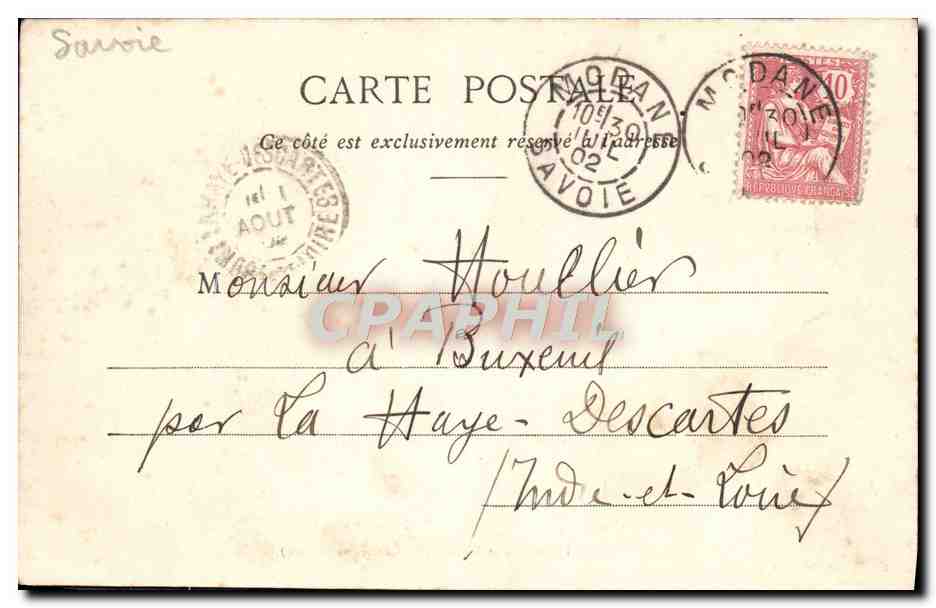 Savoie
CARTE POSTALE
Ce côté est exclusivement réservé à l'adresse
MODANE
10E/30
JUIL
02
SAVOIE
MODANE
30
IL
02
POSTES
10
REPUBLIQUE FRANÇAISE
LA HAYE-DESCARTES
1
AOUT
INDRE-ET-LOIRE
Monsieur Houllier
CPAPHIL
à Buxeuil
par La Haye-Descartes
(Indre-et-Loire)